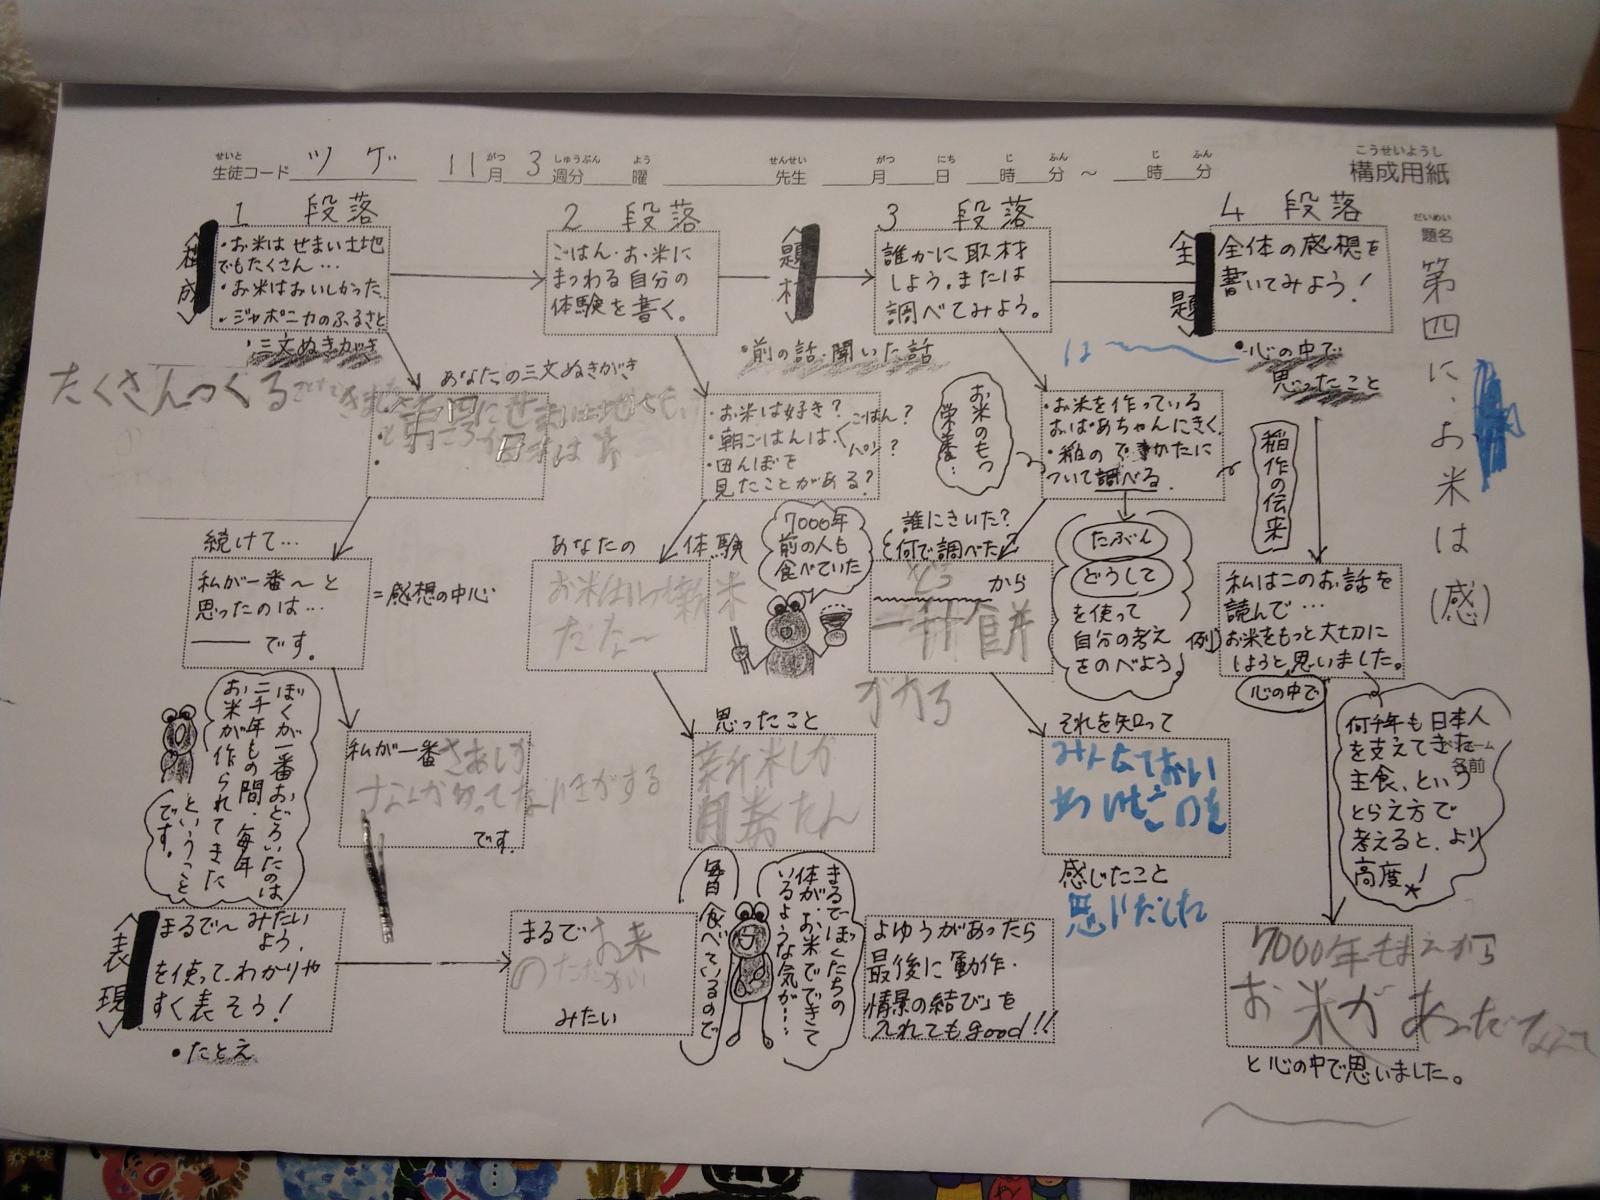 こうせいようし
構成用紙
せいと
生徒コード ツゲ
がつ しゅうぶん よう
11月3週分 曜
せんせい
先生
がつ にち じ ふん じ ふん
月 日 時 分 ~ 時 分
だいめい
題名
第四に、お米は(感)
1 段落
構成
・お米はせまい土地
でもたくさん…
・お米はおいしかった
・ジャポニカのふるさと
・三文ぬきがき
たくさんつくる
あなたの三文ぬきがき
続けて…
私が一番~と
思ったのは…
です。
=感想の中心
ぼくが一番おどろいたのは
二千年もの間、毎年
お米が作られてきた
ということ
です。
私が一番
です。
表現
まるで~みたい
よう。
を使って、わかりや
すく表そう!
・たとえ
2 段落
ごはん・お米に
まつわる自分の
体験を書く。
題材
・前の話・聞いた話
・お米は好き?
・朝ごはんは、ごはん?
パン?
・田んぼを
見たことがある?
あなたの 体験
お米はいつも新米
だな~
7000年
前の人も
食べていた
思ったこと
新米しか
まるでお米
のたたかい
みたい
毎日食べているので
まるでぼくたちの
体が、お米でできて
いるような気が…
3 段落
誰かに取材
しよう。または
調べてみよう。
は
お米のもつ
栄養…
・お米を作っている
おばあちゃんにきく。
・稲のでき方に
ついて調べる。
誰にきいた?
何で調べた?
から
たぶん
どうして
を使って
自分の考え
をのべよう。
それを知って
感じたこと
よゆうがあったら
最後に「動作・
情景の結び」を
入れてもgood!!
4 段落
主題
全体の感想を
書いてみよう!
・心の中で
思ったこと
稲作の伝来
例)
私はこのお話を
読んで…
お米をもっと大切に
しようと思いました。
心の中で
何千年も日本人
を支えてきた
主食、という
とらえ方で
考えると、より
高度!
名前
7000年もまえから
お米があっただなんて
と心の中で思いました。